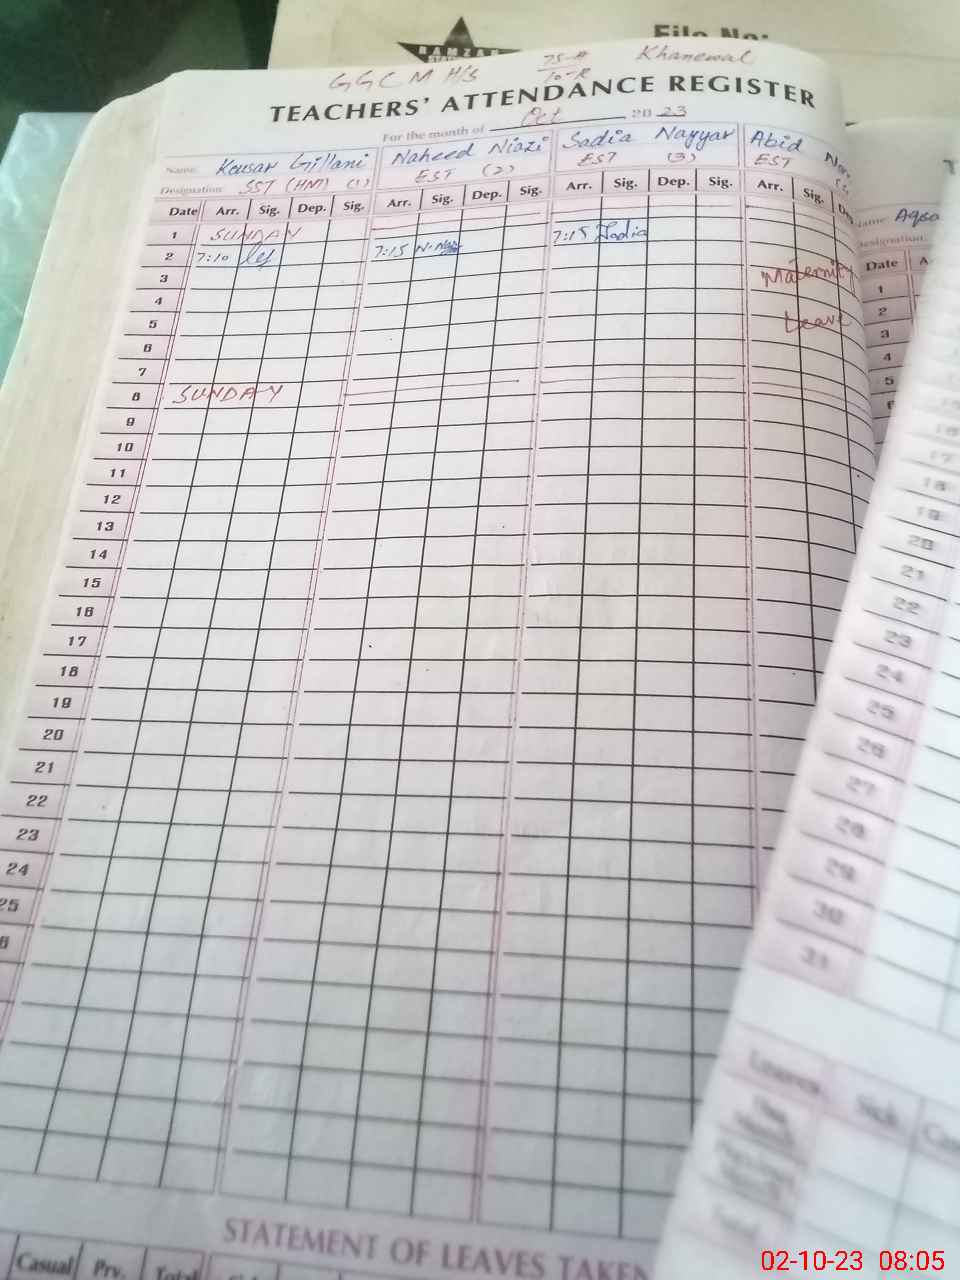 RAMZAN
File No:
GGCM H/S 75-A/10-R Khanewal
TEACHERS' ATTENDANCE REGISTER
For the month of Oct 20 23
Name: Kousar Gillani Naheed Niazi Sadia Nayyar Abid
Designation: SST (HM) (1) EST (2) EST (3) EST
Date Arr. Sig. Dep. Sig. Arr. Sig. Dep. Sig. Arr. Sig. Dep. Sig. Arr. Sig.
1 SUNDAY
2 7:10 7:15 7:15 Sadia
3 Maternity
4
5 Leave
6
7
8 SUNDAY
9
10
11
12
13
14
15
16
17
18
19
20
21
22
23
24
25
STATEMENT OF LEAVES TAKEN
Casual Prv. Total
Name: Aqsa
Designation:
Date
1
2
3
4
5
16
17
18
19
20
21
22
23
24
25
26
27
28
29
30
31
Leaves Sick
This Month
Total
02-10-23 08:05